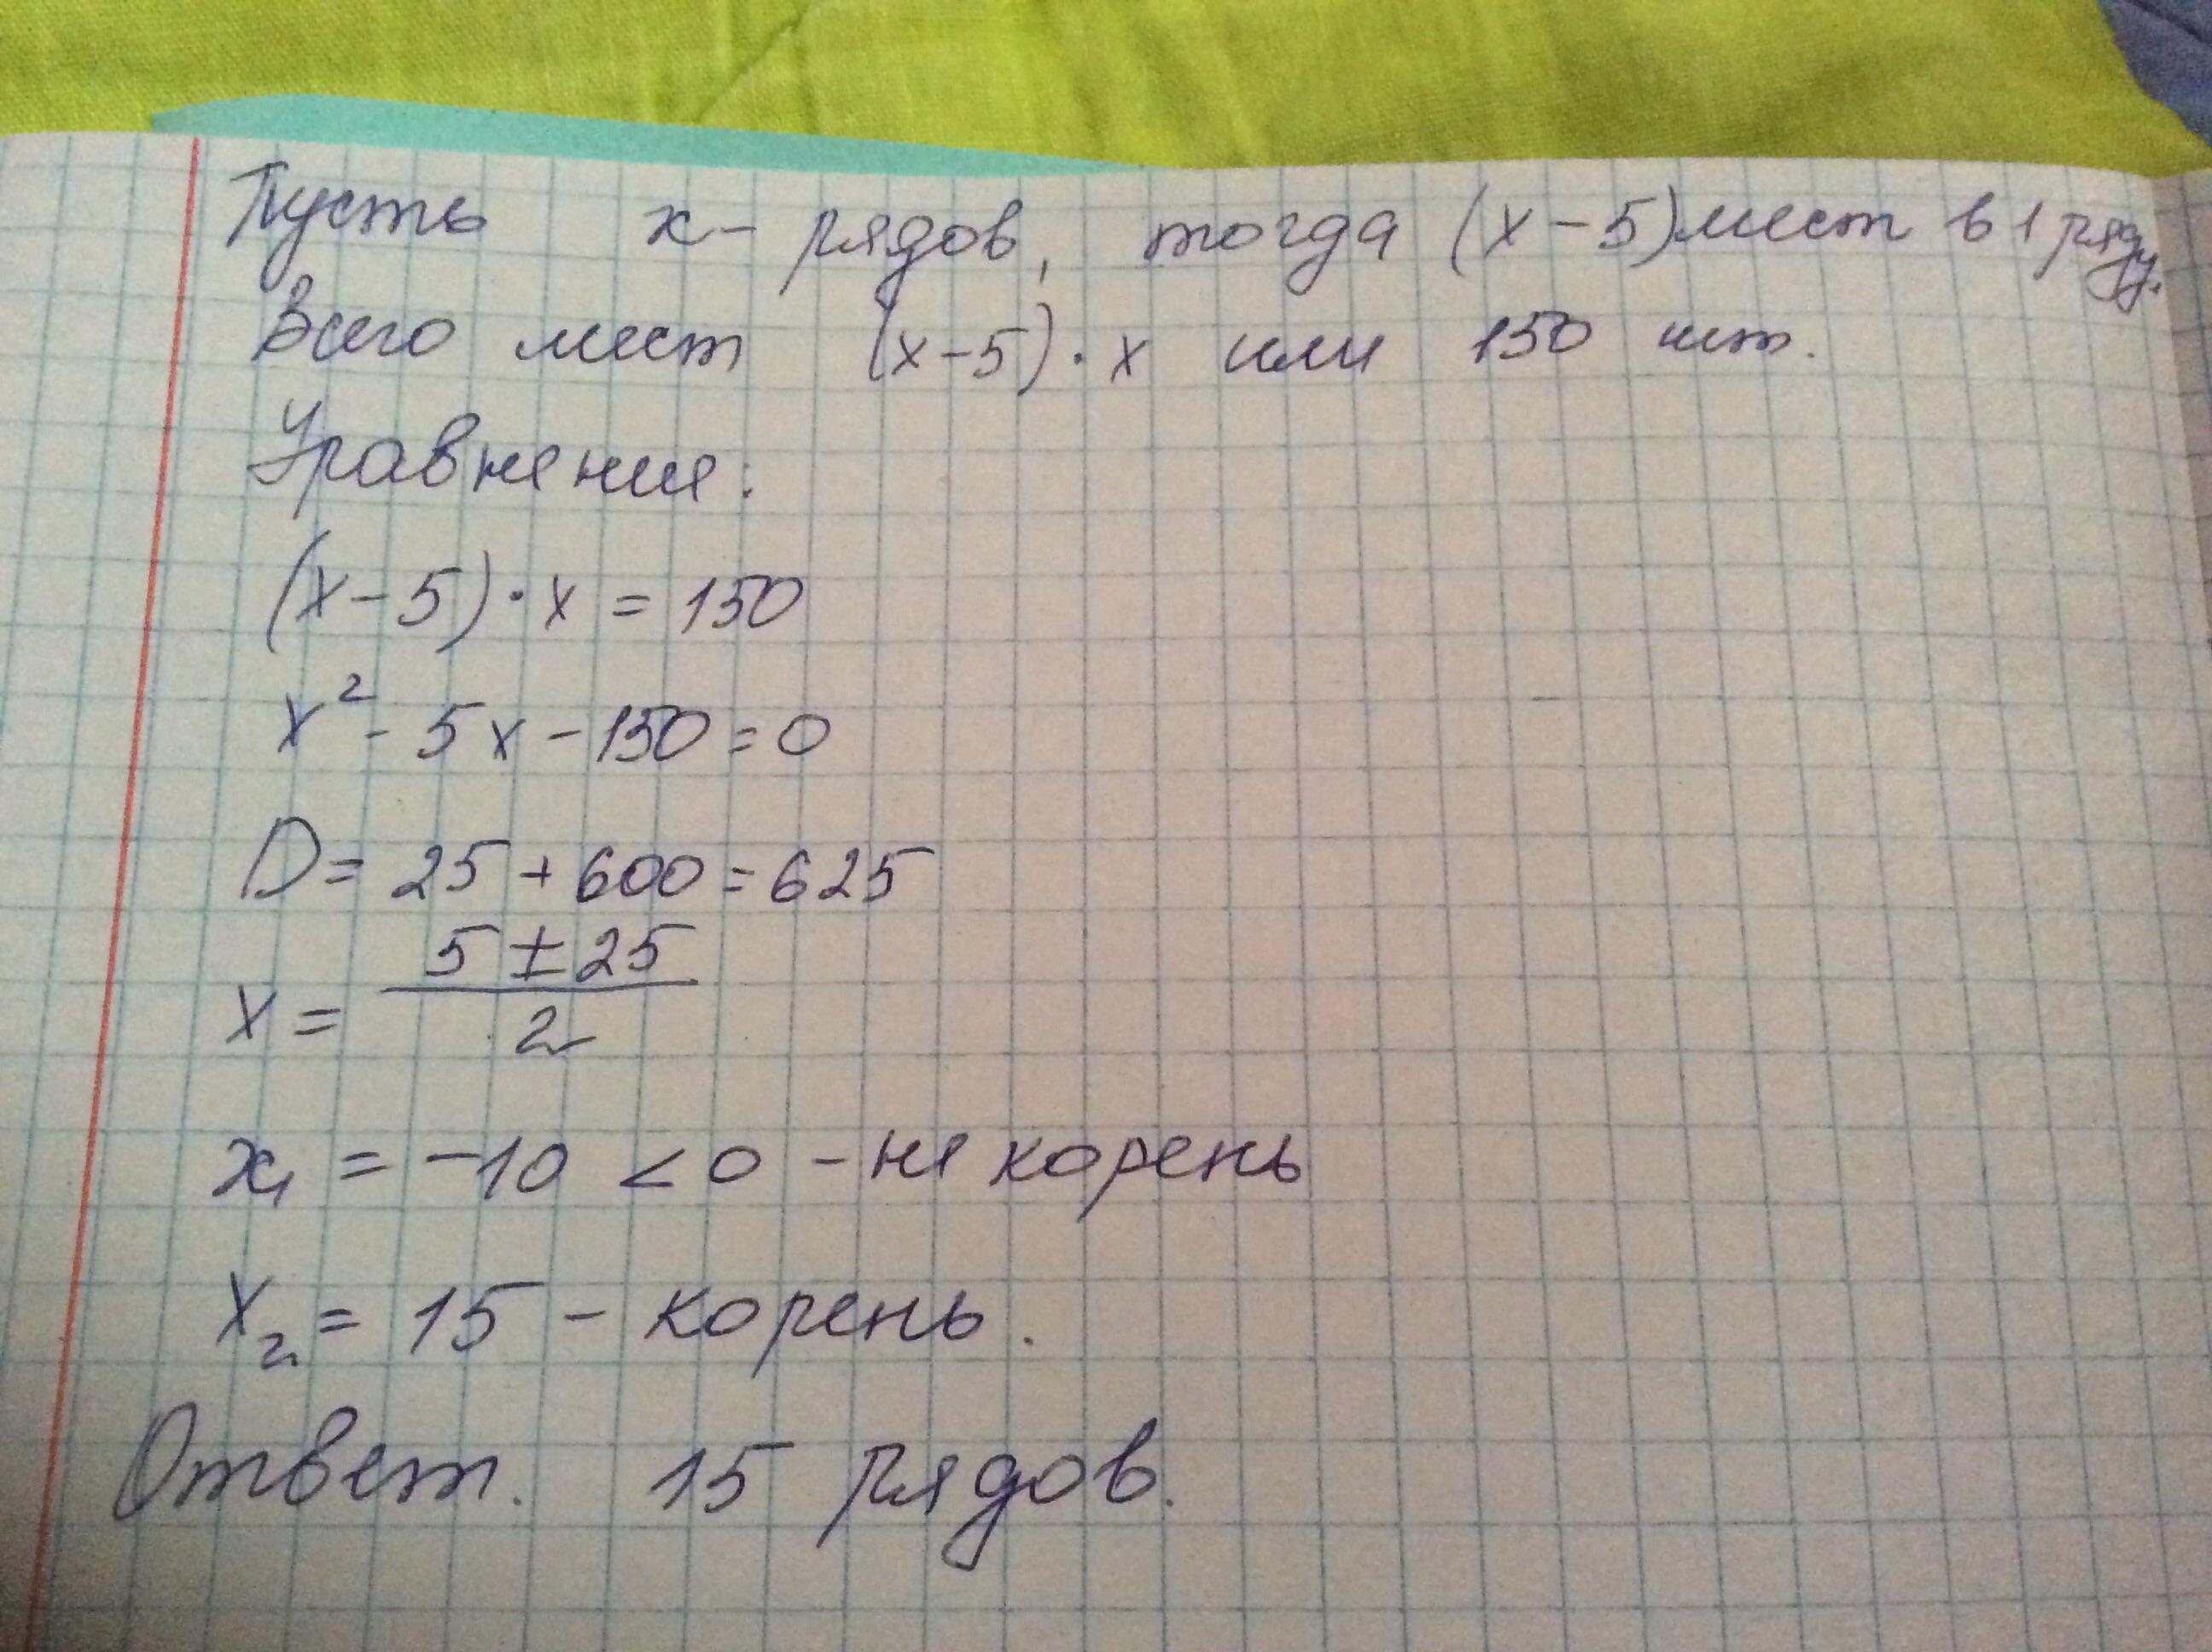 Пусть х - рядов, тогда (х-5) мест в 1 ряду.
Всего мест (х-5)·х или 150 шт.
Уравнение:
(х-5)·х = 150
х² - 5х - 150 = 0
D = 25 + 600 = 625
х = (5 ± 25) / 2
х₁ = -10 < 0 - не корень
х₂ = 15 - корень.
Ответ. 15 рядов.